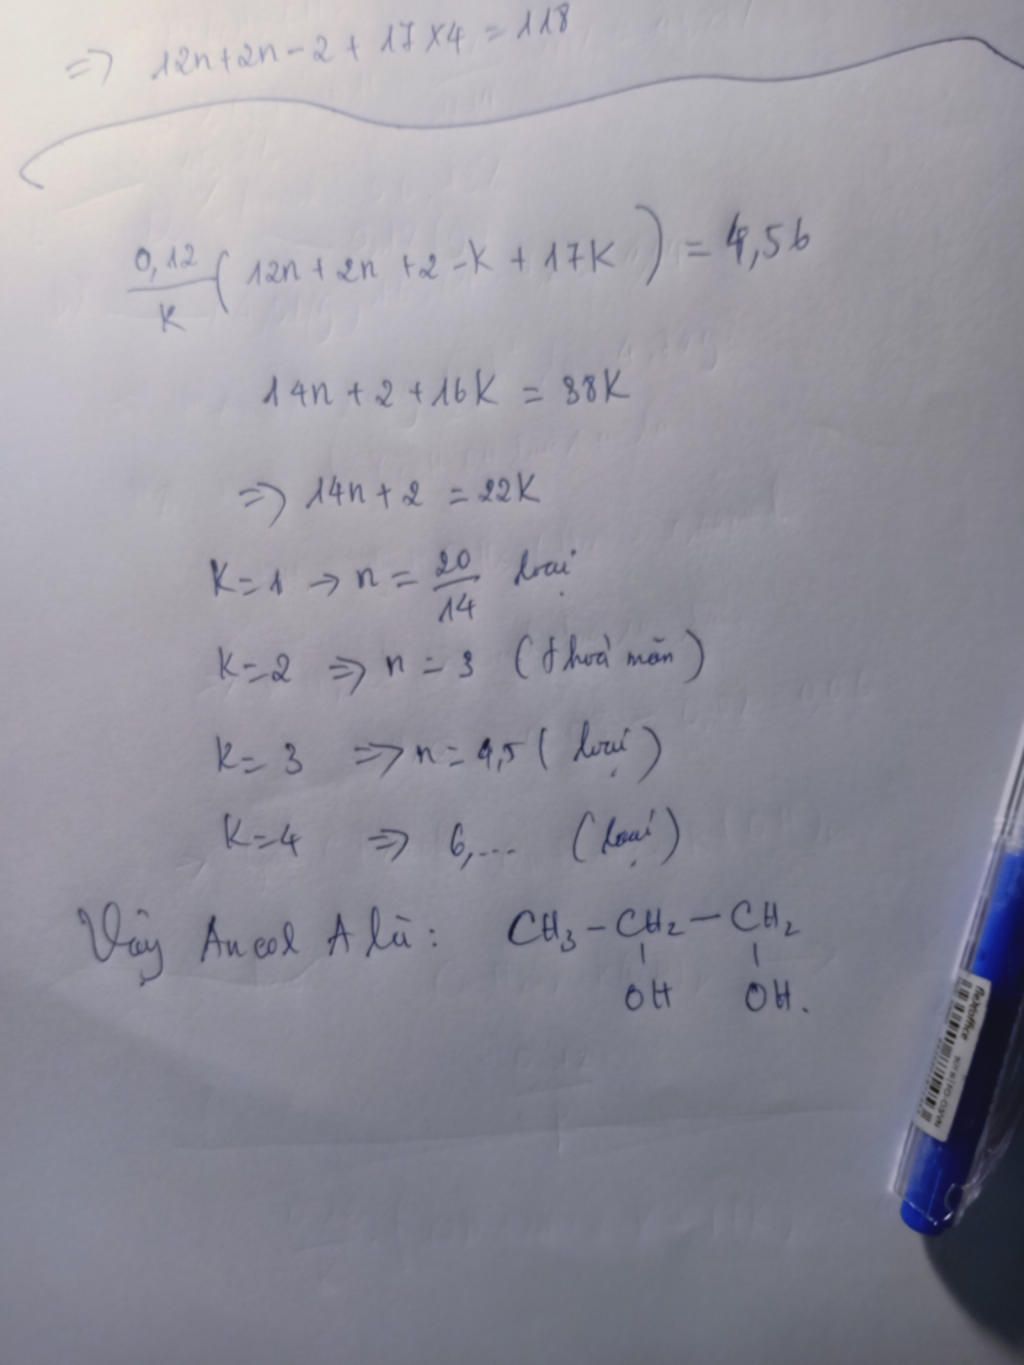 => 12n+2n-2+17×4=118
0,12/K (12n+2n+2-K+17K) = 4,56
14n+2+16K = 38K
=> 14n+2 = 22K
K=1 → n = 20/14 loại
K=2 => n=3 (thoả mãn)
K=3 => n=4,5 (loại)
K=4 => 6,... (loại)
Vậy Ancol A là: CH3-CH2-CH2
OH OH.
flexoffice